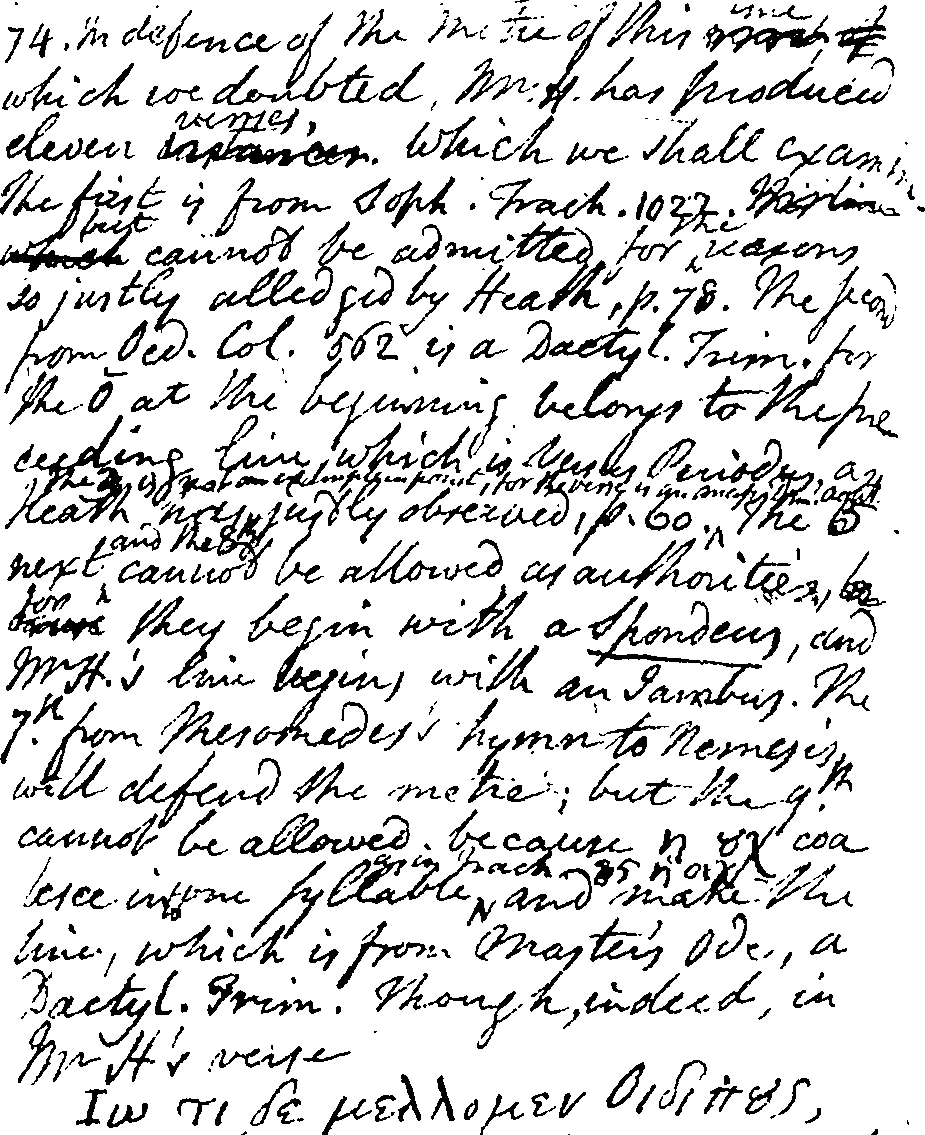 74. In defence of the Metre of this line
which we doubted, Mr. H. has produced
eleven verses, instances. which we shall examine
The first is from Soph. Trach. 1027. This line
but which cannot be admitted, for the reasons
so justly alledged by Heath, p. 78. The second
from Oed. Col. 562 is a Dactyl. Trim. for
the Ō at the beginning belongs to the pre
ceeding line which is Versus Periodus, as
the 3 is not an example in point, for the verse is an
Heath has justly observed, p. 60. The 5
and the 8th
next cannot be allowed as authorities,
for they begin with a Spondeus, and
Mr H.'s line begins with an Iambus. The
7th. from Mesomedes's hymn to Nemesis,
will defend the metre; but the 9th
cannot be allowed. because η ȣχ coa
as in Trach. 85 η ȣχ
lesce into one syllable, and make the
line, which is from Master's Ode, a
Dactyl. Trim. Though, indeed, in
Mr H's verse
Ιω τι δε μελλομεν Οιδιπȣς,